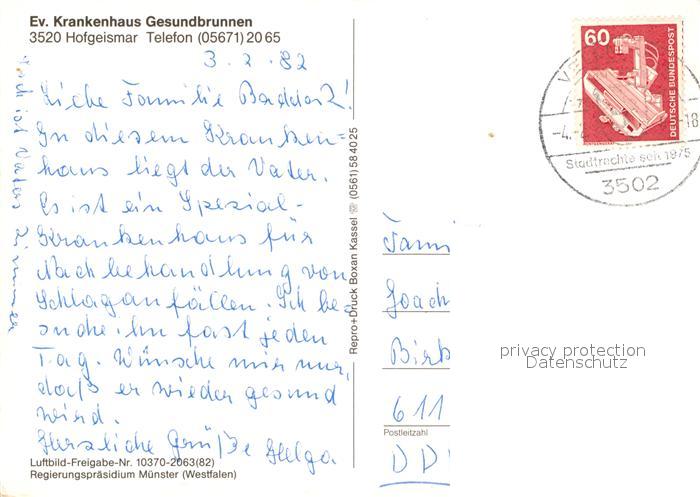 Ev. Krankenhaus Gesundbrunnen
3520 Hofgeismar Telefon (05671) 20 65
3. 2. 82
Liebe Familie
In diesem Kranken=
haus liegt der Vater.
Es ist ein Spezial-
Krankenhaus für
Nachbehandlung von
Schlaganfällen. Ich be=
suche ihn fast jeden
Tag. Wünsche mir nur,
daß er wieder gesund
wird.
Herzliche Grüße Helga
ist Vaters Zimmer
Luftbild-Freigabe-Nr. 10370-2063(82)
Regierungspräsidium Münster (Westfalen)
Repro+Druck Boxan Kassel ☏ (0561) 58 40 25
60
DEUTSCHE BUNDESPOST
-4.
18
Stadtrechte seit 1975
3502
Fami
Joach
Birk
611
Postleitzahl
DD
privacy protection
Datenschutz